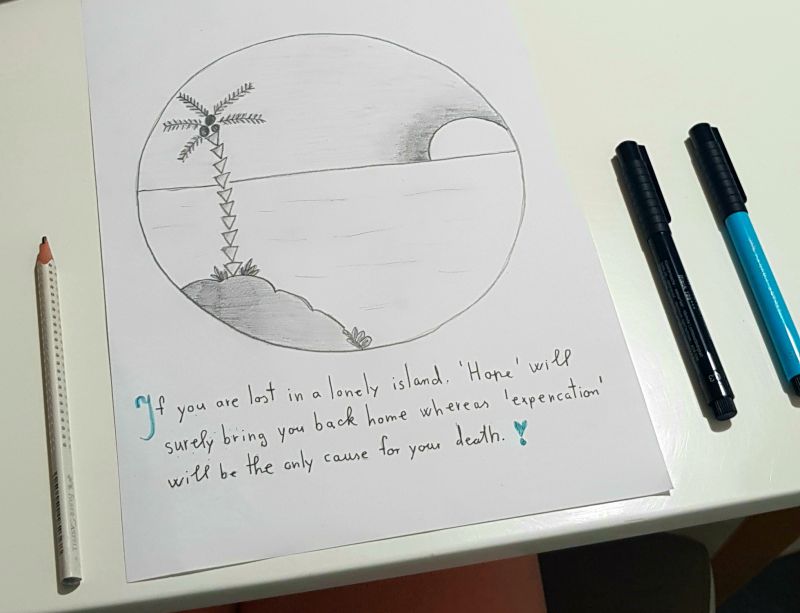 If you are lost in a lonely island. 'Hope' will
surely bring you back home whereas 'expencation'
will be the only cause for your death.